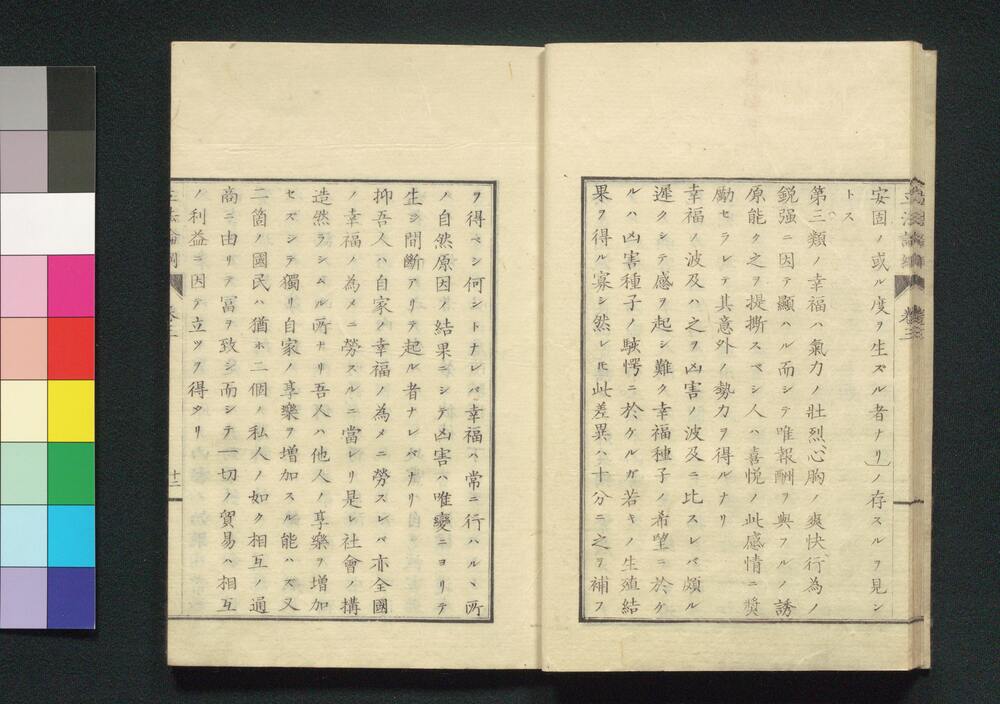 立法論綱 卷三
安固ノ或ル度ヲ生ズル者ナリ」ノ存スルヲ見ン
トス
第三類ノ幸福ハ氣力ノ壯烈心胸ノ爽快行為ノ
鋭强ニ因テ顯ハル而シテ唯報酬ヲ與フルノ誘
原能ク之ヲ提撕スベシ人ハ喜悦ノ此感情ニ奬
勵セラレテ其意外ノ勢力ヲ得ルナリ
幸福ノ波及ハ之ヲ凶害ノ波及ニ比スレバ頗ル
遲クシテ感ヲ起シ難ク幸福種子ノ希望ニ於ケ
ルハ凶害種子ノ駭愕ニ於ケルガ若キノ生殖結
果ヲ得ル寡シ然レ𪜈此差異ハ十分ニ之ヲ補フ
ヲ得ベシ何ントナレバ幸福ハ常ニ行ハルヽ所
ノ自然原因ノ結果ニシテ凶害ハ唯變ニヨリテ
生シ間斷アリテ起ル者ナレバナリ
抑吾人ハ自家ノ幸福ノ為メニ勞スレバ亦全國
ノ幸福ノ為メニ勞スルニ當レリ是レ社會ノ搆
造然ラシムル所ナリ吾人ハ他人ノ享樂ヲ增加
セズシテ獨リ自家ノ享樂ヲ增加スル能ハズ又
二箇ノ國民ハ猶ホ二個ノ私人ノ如ク相互ノ通
商ニ由リテ冨ヲ致シ而シテ一切ノ貿易ハ相互
ノ利益ニ因テ立ツヲ得タリ
立法論綱 卷三 十二